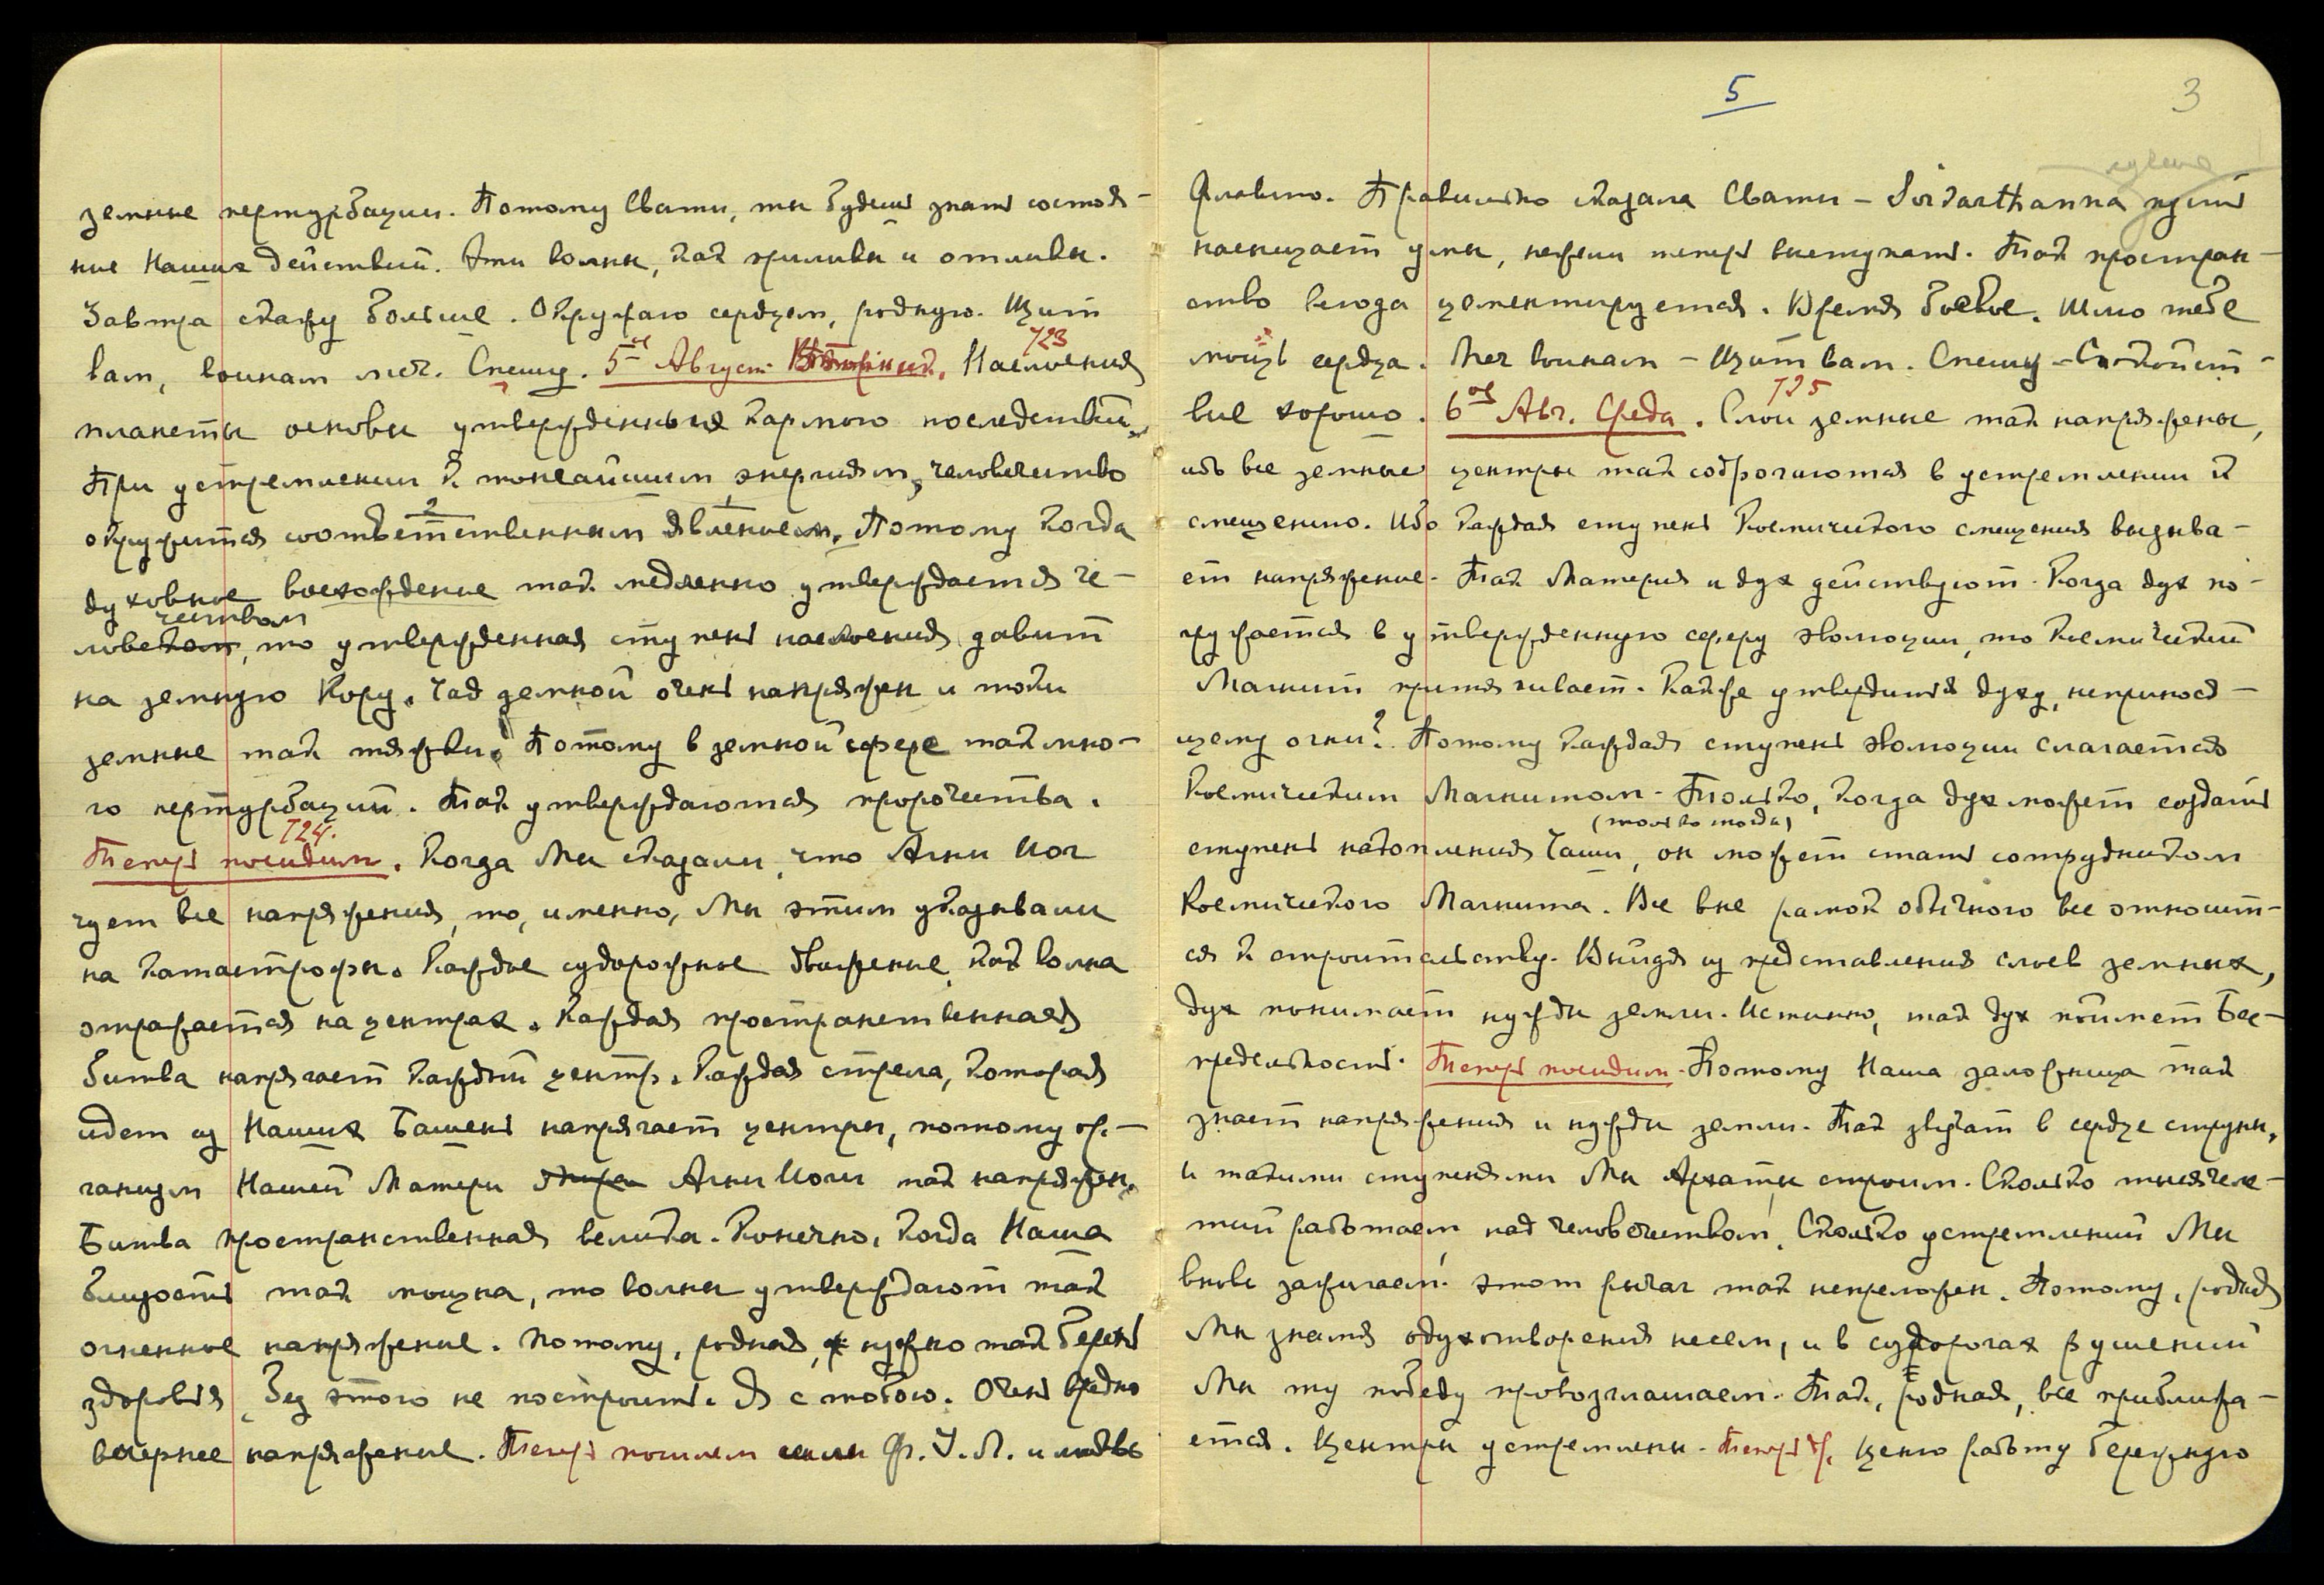 земные пертурбации. Потому Свати, ты будешь знать состоя-
ние Наших действий. Эти волны, как приливы и отливы.
Завтра скажу больше. Окружаю сердцем, родную. Щит
723
вам, воинам меч. Спешу. 5ое Август. Вторник. Наслоения
планеты основы утвержденныя кармою последствий.
При устремлении к тончайшим энергиям, человечество
2 1
окружится соответственным явлением. Потому когда
духовное восхождение так медленно утверждается че-
чеством
ловеком, то утвержденная ступень наслоения давит
на земную кору. Чад земной очень напряжен и токи
земные так тяжки. Потому в земной сфере так мно-
го пертурбаций. Так утверждаются пророчества.
724.
Теперь посидим. Когда Мы сказали, что Агни Йог
чует все напряжения, то, именно, Мы этим указывали
на катастрофы. Каждое судорожное движение, как волна
отражается на центрах. Каждая пространственная
битва напрягает каждый центр. Каждая стрела, которая
идет из Наших Башень напрягает центры, потому ор-
ганизм Нашей Матери Агни Йоги так напряжен.
Битва пространственная велика. Конечно, когда Наша
близость так мощна, то волны утверждают так
огненное напряжение. Потому, родная, нужно так беречь
здоровья, без этого не построить. Я с тобою. Очень вредно
вечернее напряжение. Теперь пошлем Ф. У. Л. и
5
3
Флавию. Правильно сказала Свати – Sirdarthanna
насыщает умы, нежели теперь выступать. Так простран-
ство всегда цементируется. Время боевое. Шлю тебе
мощь сердца. Меч воинам – Щит вам. Спешу – Спокойст-
725
вие хорошо. 6ое Авг. Среда. Слои земные так напряжены,
ибо все земные центры так содрогаются в устремлении к
смещению. Ибо каждая ступень Космического смещения вызыва-
ет напряжение. Так Материя и дух действуют. Когда дух по-
гружается в утвержденную сферу эволюции, то Космический
Магнит притягивает. Как же утвердиться духу, неприлося-
щему огни? Потому каждая ступень эволюции слагается
Космическим Магнитом. Только, когда дух может создать
(только тогда)
ступень накопления Чаши, он может стать сотрудником
Космического Магнита. Все вне рамок обычного все относит-
ся к строительству. Выйдя из представления слоев земных,
дух понимает нужды земли. Истинно, так дух поймет Бес-
предельность. Теперь посидим. Потому Наша заложница так
знает напряжения и нужды земли. Так звучат в сердце струны,
и такими ступенями Мы Архаты строим. Сколько тысячеле-
тий работаем над человечеством! Сколько устремлений Мы
вновь зажигаем! Этот рычаг так непреложен. Потому, родная,
Мы знамя одухотворения несем, и в судорогах рушений
Мы ту победу провозглашаем. Так, родная, все приближа-
ется. Центры устремлены. Теперь Ф. Ценю работу бережную